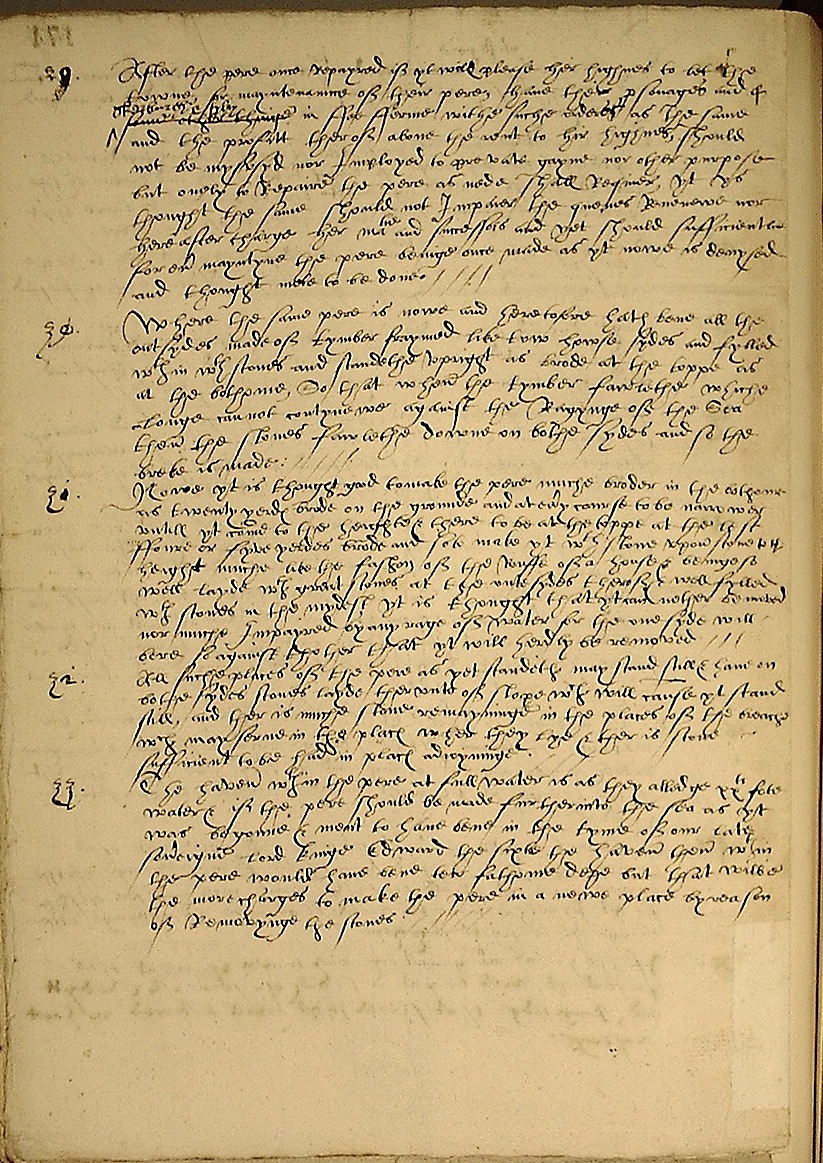 29. After the pere once Repayred if yt will please her highnes to let the
towne for maintenaunce of their peres have ther psonages and
in ffee fferme withe suche orders as the same
and the profitt therof above the rent to her highnes should
not be mysusyd nor Imployed to prevate gayne nor other purpose
but onely to Repaire the pere as nede shall Requier, yt ys
thought the same should not Impaier the quenes Revenewe nor
hereafter charge her matie and successors and yet should sufficientlie
for ev mayntyne the pere beinge once made as yt nowe is devysed
and thought mete to be done
30. Where the same pere is nowe and heretofore hath bene all the
out sydes made of tymber fraymed like two howse sydes and fylled
wth in wth stones and standethe upright as brode at the toppe as
at the bothome, So that when the tymber fawlethe whiche
longe cannot contynewe against the Ragynge of the Sea
then the stones fawlethe downe on bothe sydes and so the
breke is made
31. Nowe yt is thought good to make the pere muche broder in the bothome
as twenty yerdes brode on the grounde and at evy course to be narrower
untill yt come to the height & there to be at the toppe at the lest
ffoure or fyve yerdes brode and so to make yt wth stone upon stone to the
height muche like the fashon of the Ruffe of a house & beinge so
well layde wth great stones at the outesydes therof & well fylled
wth stones in the mydest yt is thought that yt can nother be moved
nor muche Impayred by any rage of water for the one syde will
bere so against thother that yt will herdly be removed
32. All suche places of the pere as yet standeth may stand still & have on
bothe sydes stones layde therunto of slope wch will cause yt stand
still, and ther is muche stone remayninge in the places of the breache
wch may serve in the place wher they lye & ther is stone
sufficient to be had in place adioyninge
33. The haven wthin the pere at full water is as they alledge xxti fote
water & if the pere should be made further into the sea as yt
was begonne & ment to have bene in the tyme of our late
soveigne lord kinge Edward the sixte the haven then wthin
the pere would have bene ten fathome depe but that wilbe
the more charges to make the pere in a newe place by reason
of Removynge the stones